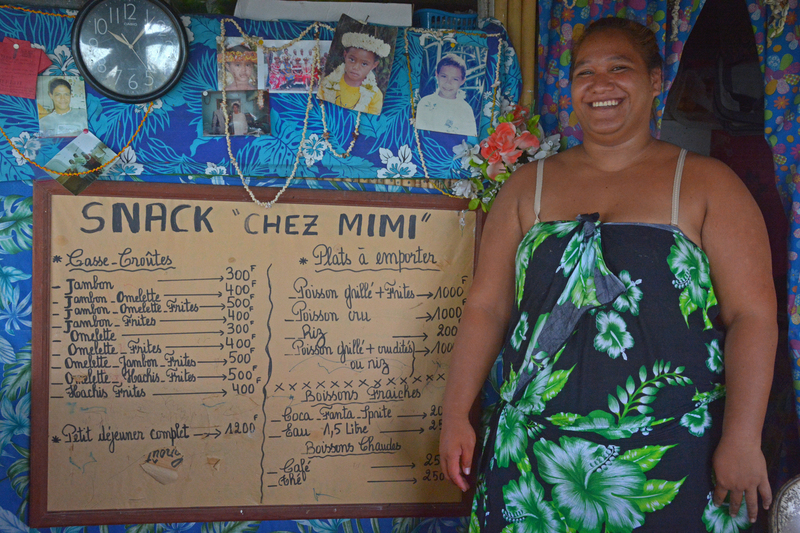 SNACK "CHEZ MIMI"
* Casse-Croûtes
_ Jambon → 300F
_ Jambon_Omelette → 400F
_ Jambon_Omelette_Frites → 500F
_ Jambon_Frites → 400F
_ Omelette → 300F
_ Omelette_Frites → 400F
_ Omelette_Jambon_Frites → 500F
_ Omelette_Hachis_Frites → 500F
_ Hachis Frites → 400
* Petit déjeuner complet → 1200F
* Plats à emporter
_ Poisson grillé + Frites → 1000F
_ Poisson cru → 1000F
_ Riz → 200
_ Poisson grillé + crudités → 100
ou riz
x x x x x x x x x x x x x x
Boissons Fraîches
_ Coca_Fanta_Sprite → 2
_ Eau 1,5 Litre → 2
Boissons Chaudes
_ Café → 25
_ Thé → 250
12 1 2 3 4 5 6 7 8 9 10 11